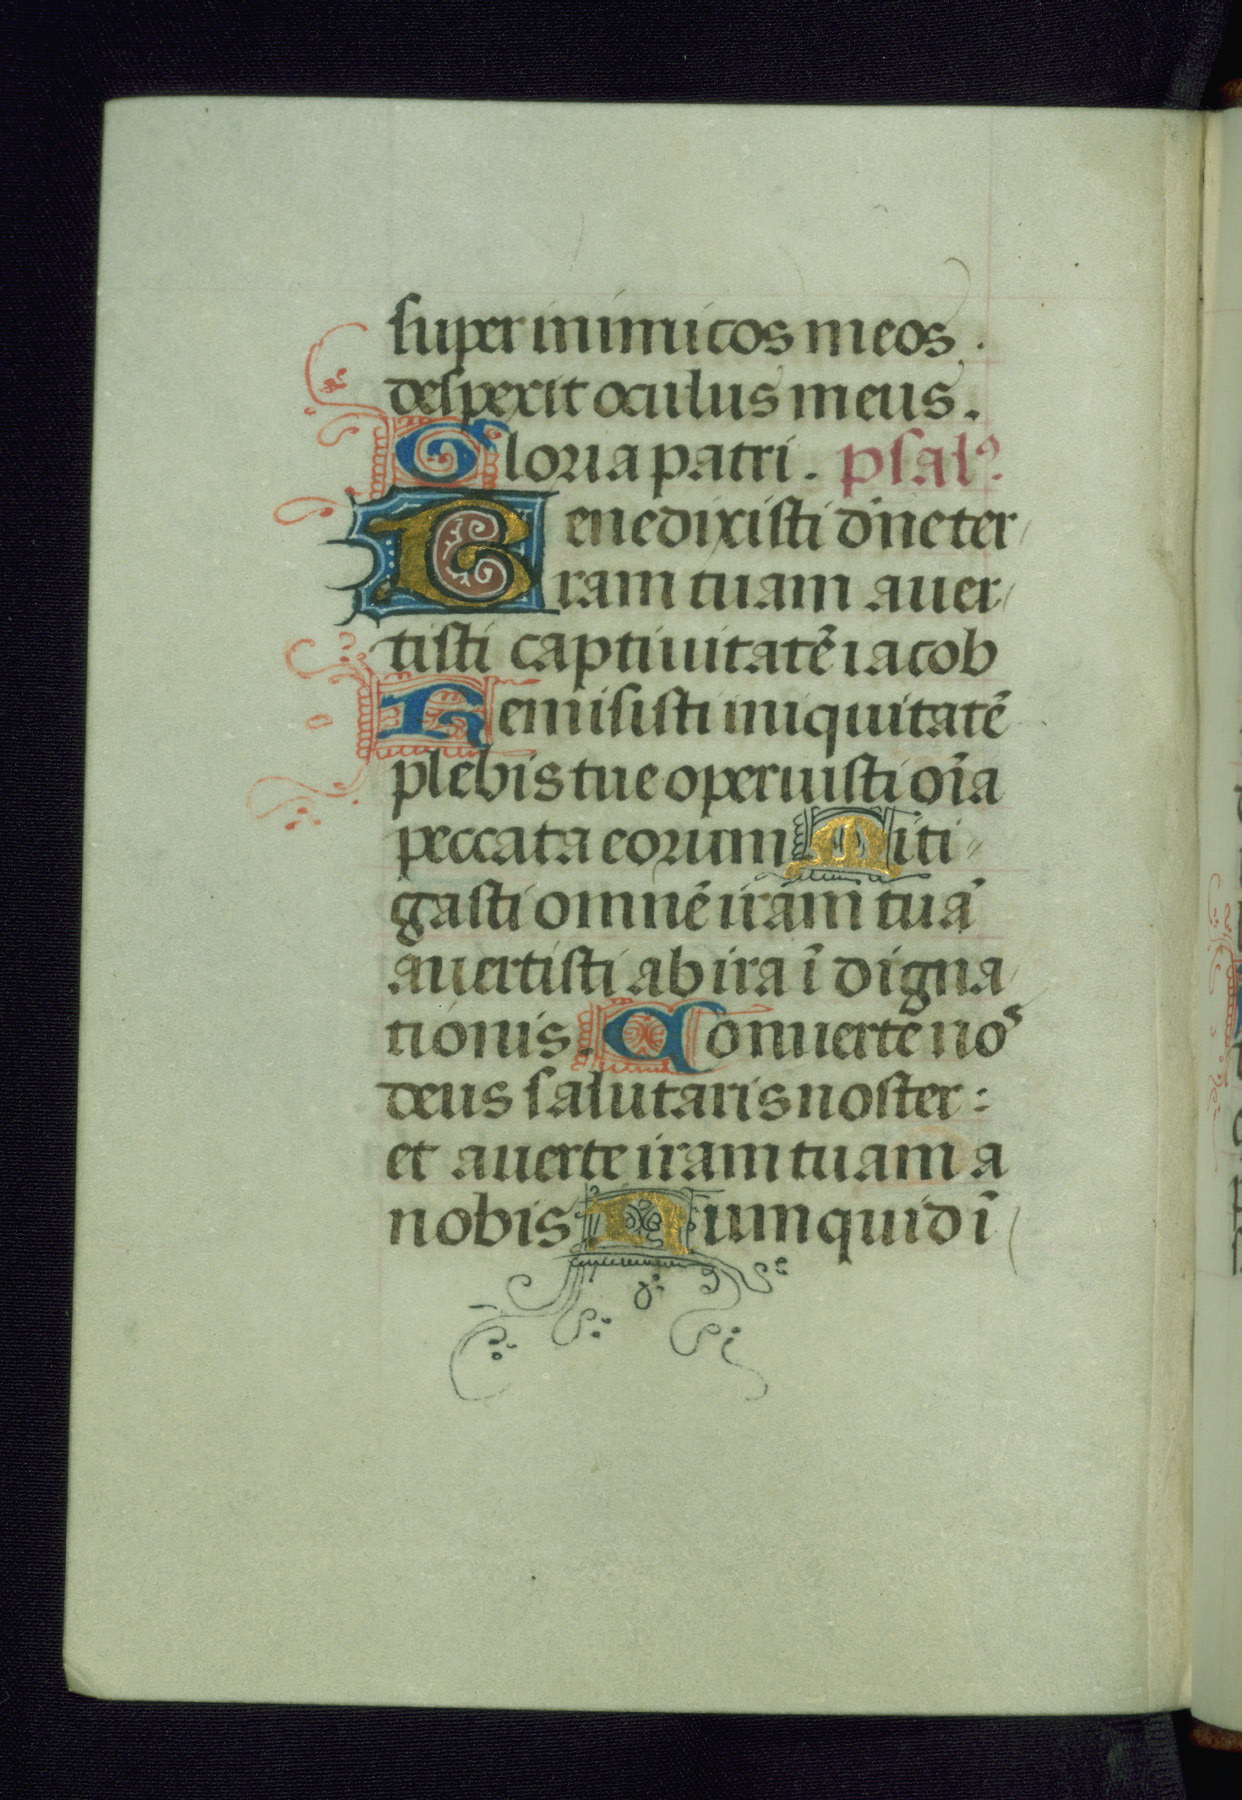 super inimicos meos.
despexit oculus meus.
Gloria patri. psalꝰ.
Benedixisti dn̄e ter
ram tuam auer
tisti captiuitatē iacob
Remisisti iniquitatē
plebis tue operuisti oīa
peccata eorum Miti
gasti omnē iram tuā
auertisti ab ira īdigna
tionis. Conuerte nos
deus salutaris noster:
et auerte iram tuam a
nobis Numquid ī